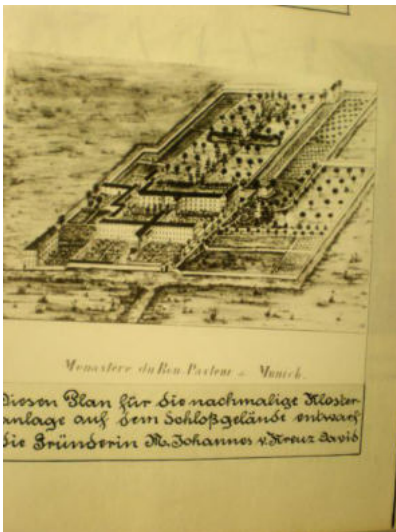 Monastere du Bon Pasteur a Munich.
Diesen Plan für die nachmalige Kloster-
anlage auf dem Schloßgelände entwarf
die Gründerin M. Johannes v. Kreuz David